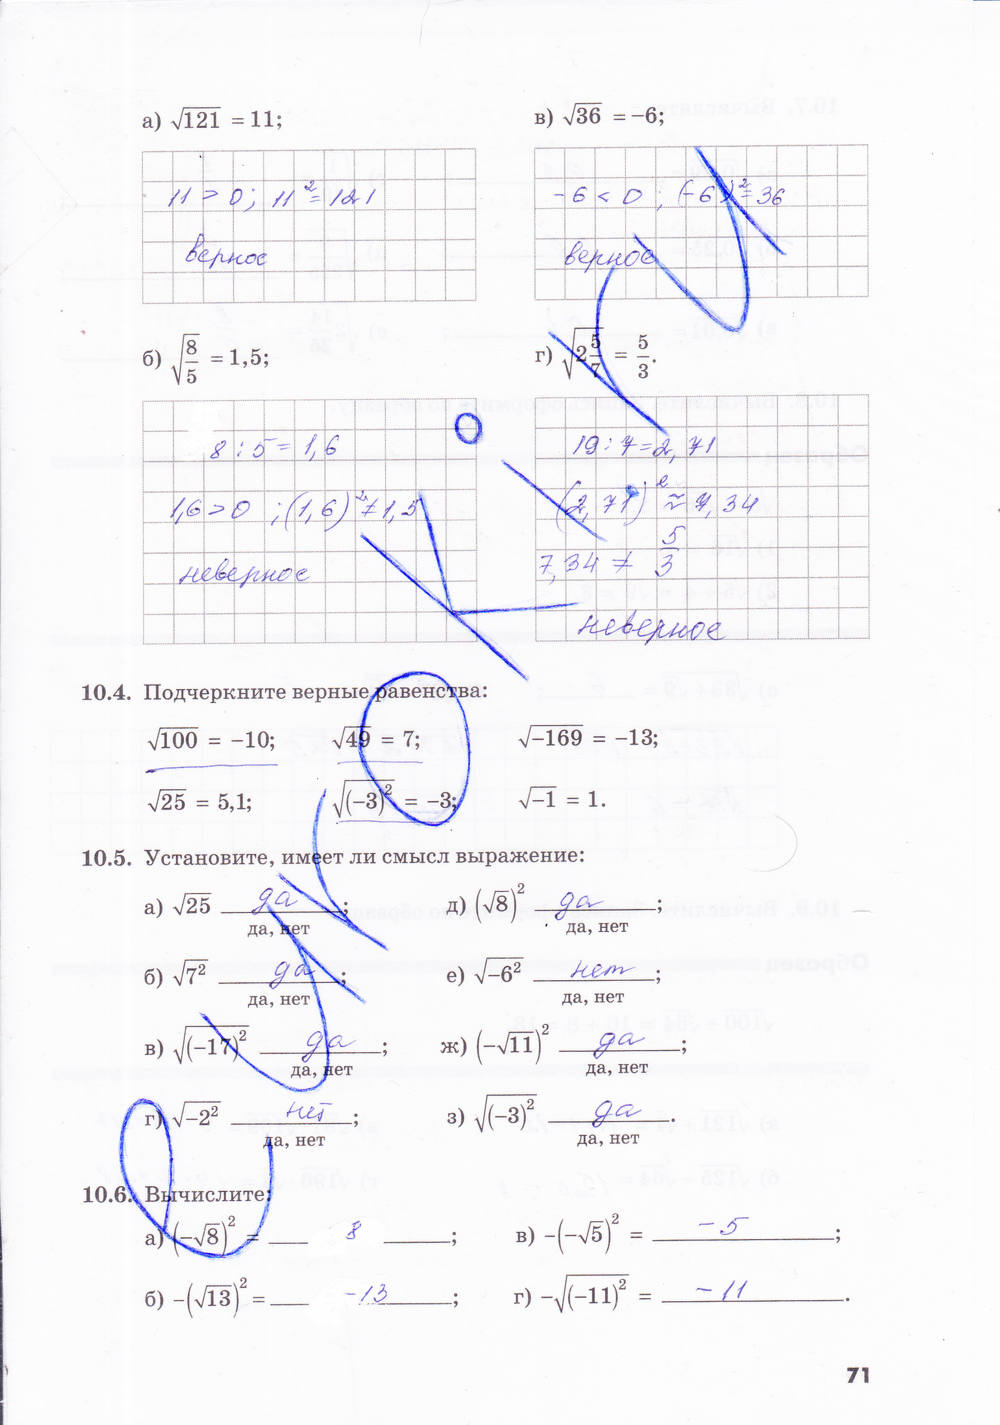 а) √121 = 11;
11 > 0; 11² = 121
верное
в) √36 = –6;
–6 < 0; (–6)² = 36
верное
б) √(8/5) = 1,5;
8 : 5 = 1,6
1,6 > 0; (1,6)² ≠ 1,5
неверное
г) √(2 5/7) = 5/3.
19 : 7 = 2,71
(2,71)² ≈ 7,34
7,34 ≠ 5/3
неверное
10.4. Подчеркните верные равенства:
√100 = –10; √49 = 7; √–169 = –13;
√25 = 5,1; √(–3)² = –3; √–1 = 1.
10.5. Установите, имеет ли смысл выражение:
а) √25 да; д) (√8)² да;
да, нет да, нет
б) √7² да; е) √–6² нет;
да, нет да, нет
в) √(–17)² да; ж) (–√11)² да;
да, нет да, нет
г) √–2² нет; з) √(–3)² да.
да, нет да, нет
10.6. Вычислите:
а) (–√8)² = 8; в) –(–√5)² = –5;
б) –(√13)² = –13; г) –√(–11)² = –11.
71